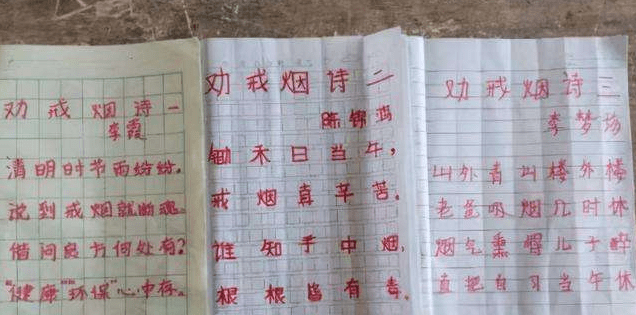 劝戒烟诗一
李霞
清明时节雨纷纷。
说到戒烟就断魂。
借问良方何处有?
"健康""环保"心中存。
劝戒烟诗二
陈锦鸿
锄禾日当午,
戒烟真辛苦。
谁知手中烟,
根根皆有毒。
劝戒烟诗三
李梦扬
山外青山楼外楼
老爸吸烟几时休
烟气熏得儿子醉
直把自习当午休